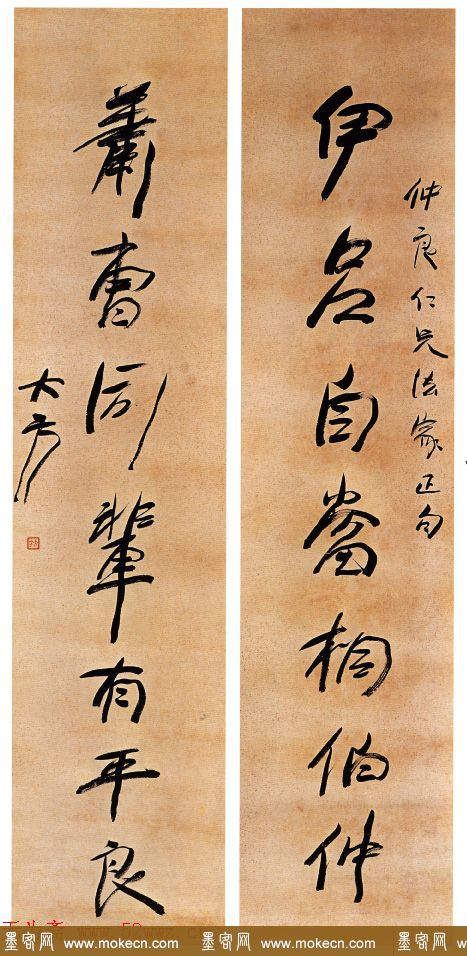 仲良仁兄法家正句
伊吕自當相伯仲
蕭曹同輩有平良
大方
墨客网 www.mokecn.com 墨客网 www.mokecn.com